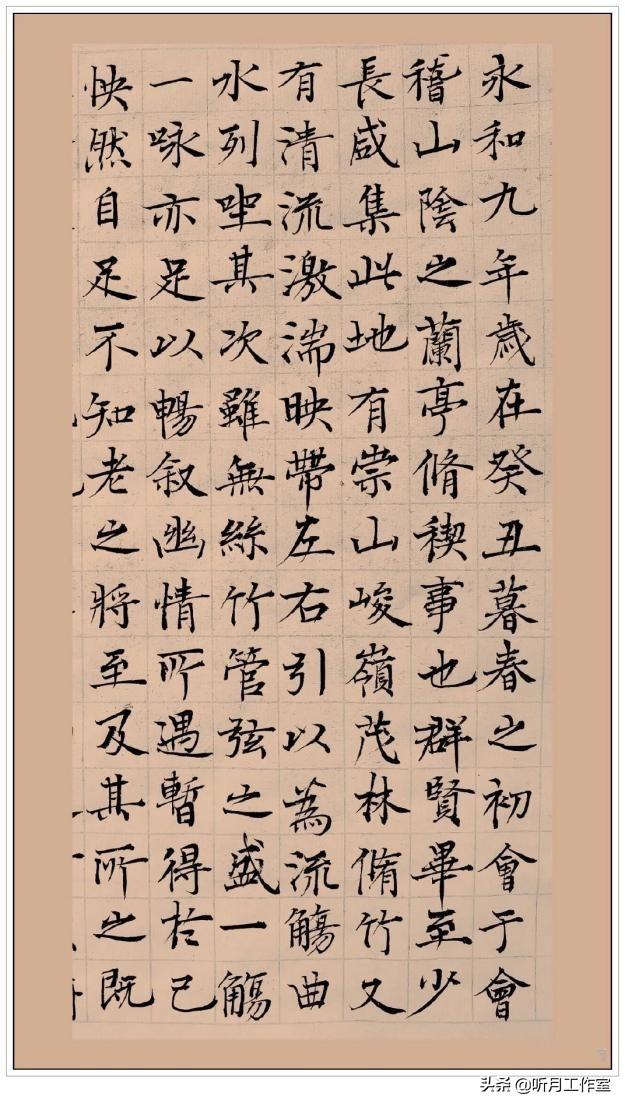 永和九年歲在癸丑暮春之初會于會
稽山陰之蘭亭脩稧事也群賢畢至少
長咸集此地有崇山峻嶺茂林脩竹又
有清流激湍映帶左右引以為流觴曲
水列坐其次雖無絲竹管弦之盛一觴
一咏亦足以暢叙幽情所遇暫得於己
怏然自足不知老之將至及其所之既
头条 @听月工作室